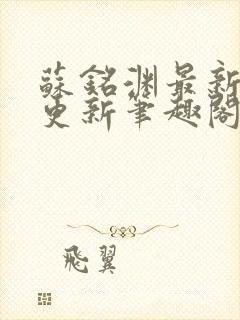 蘇銘淵最新
更新筆趣閣
飛翼